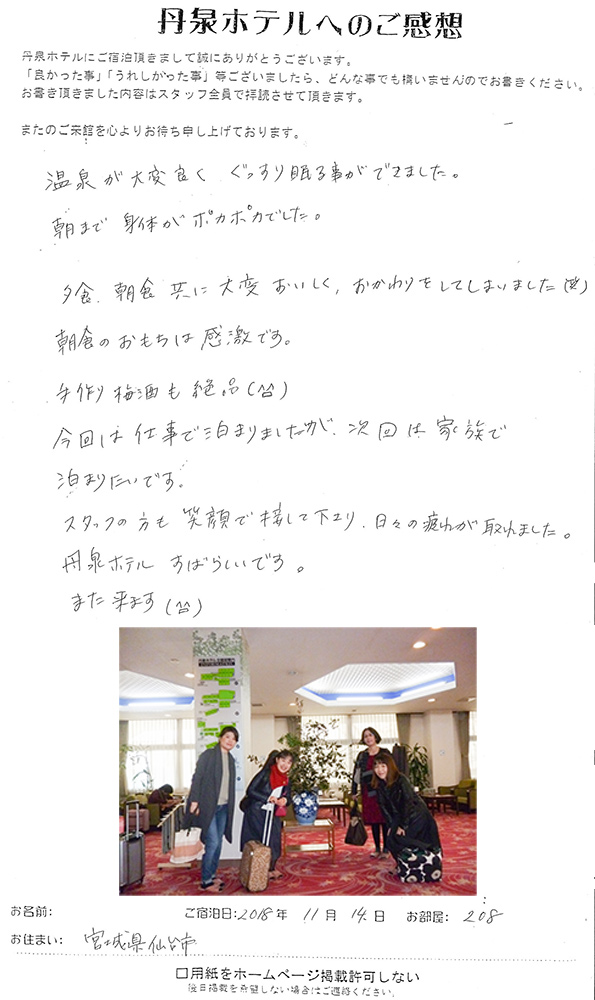 丹泉ホテルへのご感想
丹泉ホテルにご宿泊頂きまして誠にありがとうございます。
「良かった事」「うれしかった事」等ございましたら、どんな事でも構いませんのでお書きください。
お書き頂きました内容はスタッフ全員で拝読させて頂きます。
またのご来館を心よりお待ち申し上げております。
温泉が大変良く ぐっすり眠る事ができました。
朝まで 身体がポカポカでした。
夕食、朝食 共に 大変 おいしく、おかわりをしてしまいました(笑)
朝食のおもちは 感激です。
手作り梅酒も絶品(^^)
今回は 仕事で泊まりましたが、次回は 家族で
泊まりたいです。
スタッフの方も 笑顔で接して下さり、日々の疲れが取れました。
丹泉ホテル すばらしいです。
また来ます(^^)
お名前: ご宿泊日:2018年 11月 14日 お部屋: 208
お住まい: 宮城県仙台市
□用紙をホームページ掲載許可しない
後日掲載を希望しない場合はご連絡ください。